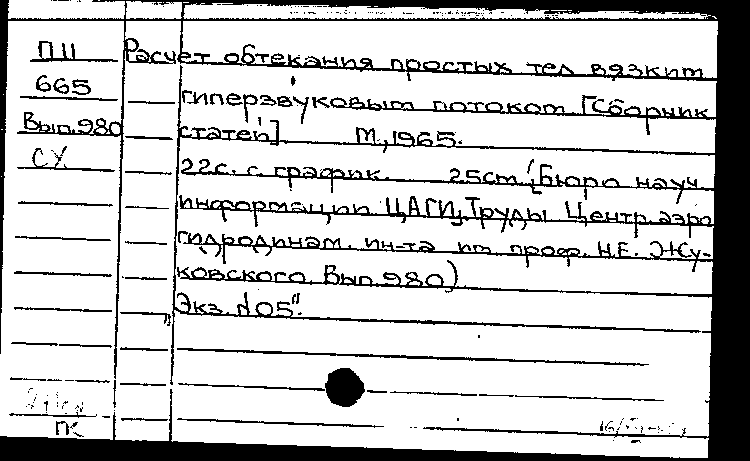 П11 Расчет обтекания простых тел вязким
665 гиперзвуковым потоком. [Сборник
Вып.980 статей]. М., 1965.
СУ. 22с. с график. 25см. (Бюро науч.
информации ЦАГИ, Труды Центр. аэро
гидродинам. ин-та им. проф. Н.Е. Жу-
ковского. Вып. 980)
"Экз. №05".
ГК